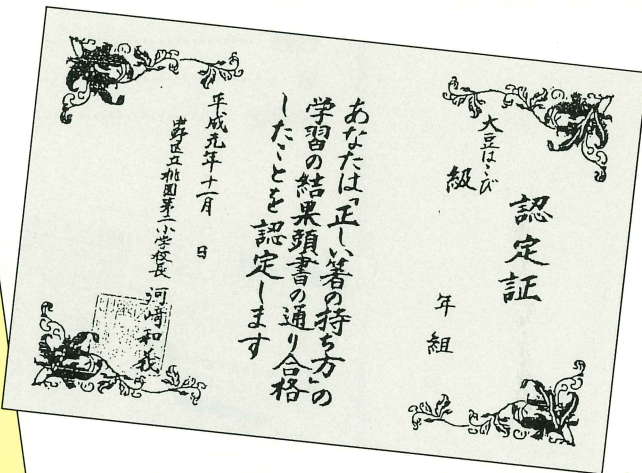 認定証
年 組
大豆はこび
級
あなたは「正しい箸の持ち方」の
学習の結果頭書の通り合格
したことを認定します
平成元年十一月 日
中野区立桃園第二小学校長 河﨑和義